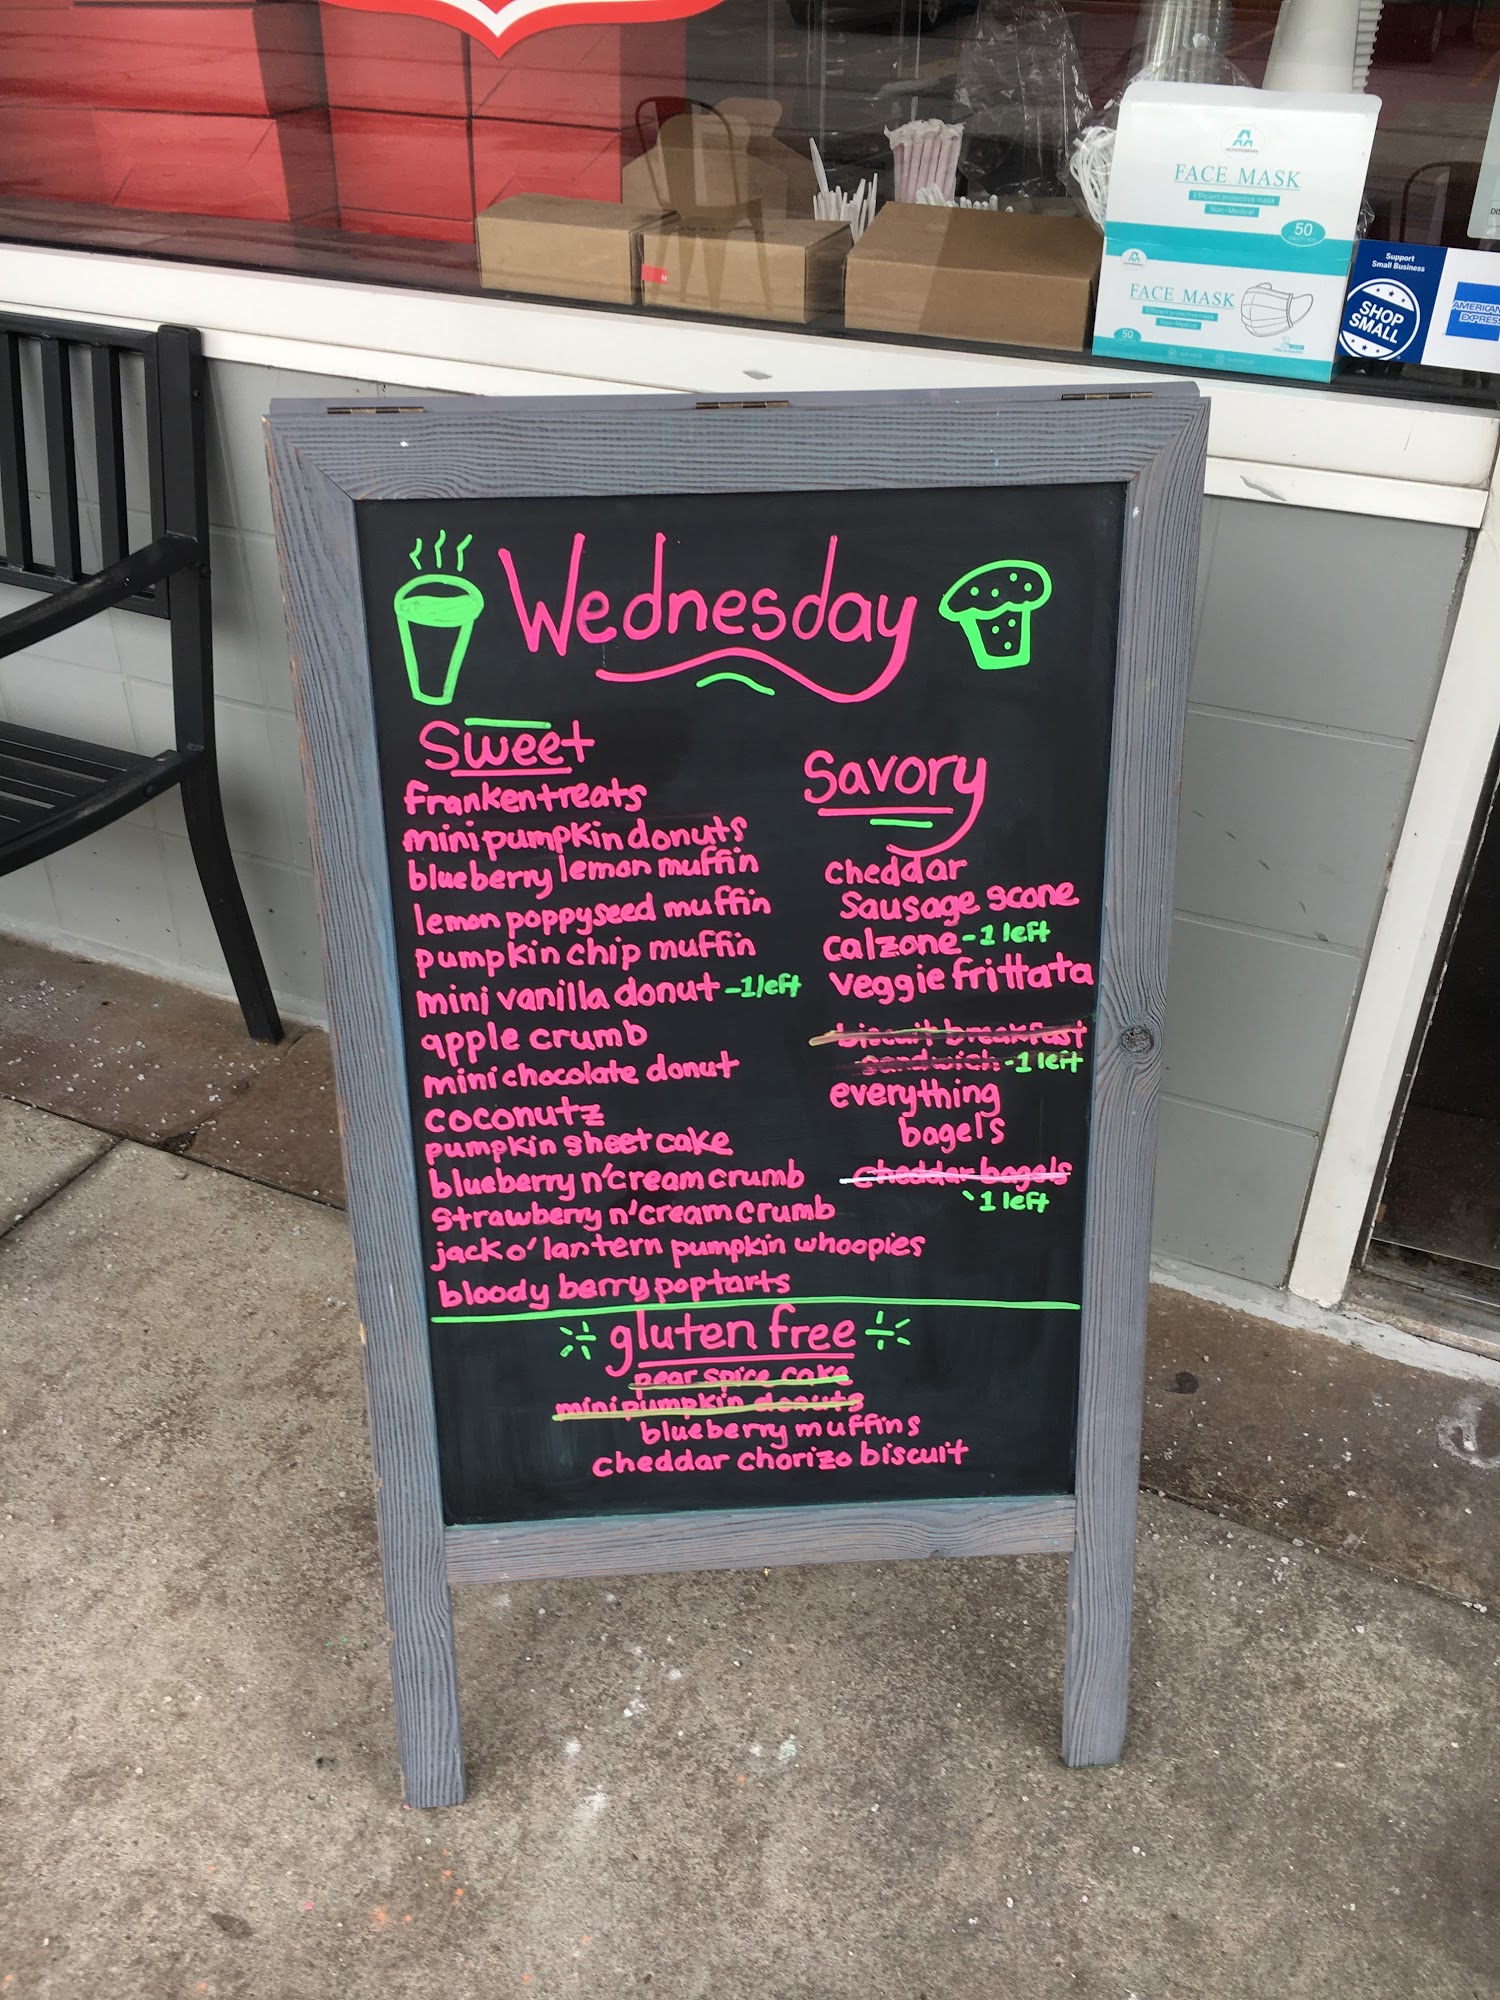 FACE MASK
Efficient protective mask
Non-Medical
50
FACE MASK
Efficient protective mask
Non-Medical
50
Support
Small Business
SHOP
SMALL
AMERICAN
EXPRESS
Wednesday
Sweet
frankentreats
mini pumpkin donuts
blueberry lemon muffin
lemon poppyseed muffin
pumpkin chip muffin
mini vanilla donut -1 left
apple crumb
mini chocolate donut
coconutz
pumpkin sheet cake
blueberry n'cream crumb
strawberry n'cream crumb
jack o'lantern pumpkin whoopies
bloody berry poptarts
Savory
cheddar
sausage scone
calzone -1 left
veggie frittata
biscuit breakfast
sandwich -1 left
everything
bagels
cheddar bagels
1 left
gluten free
pear spice cake
mini pumpkin donuts
blueberry muffins
cheddar chorizo biscuit